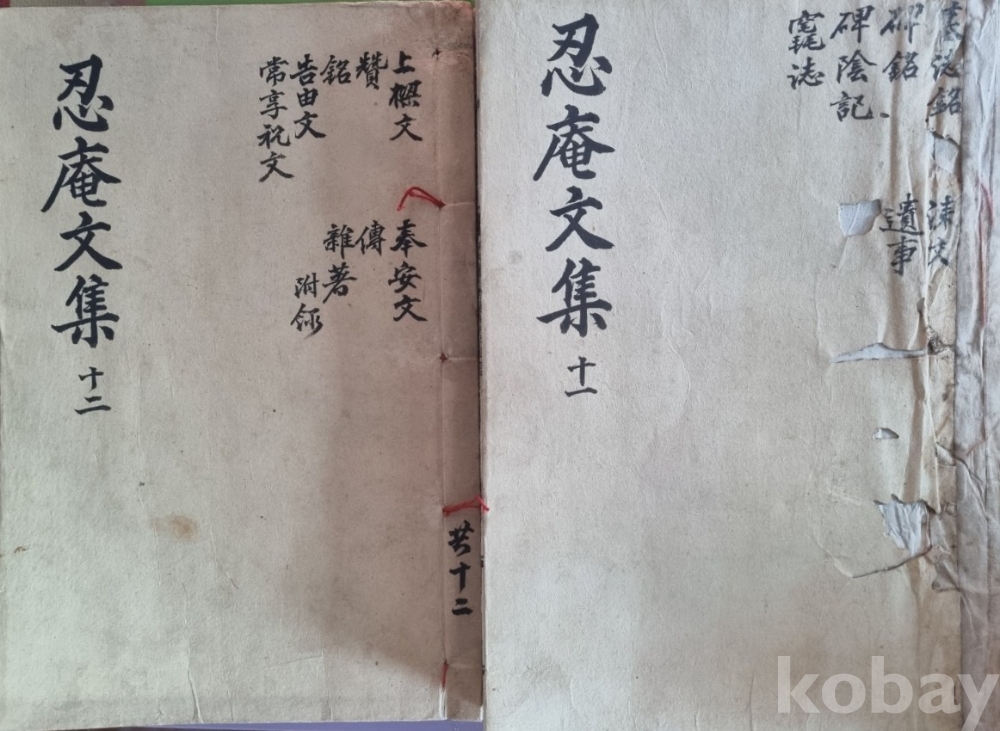 上樑文 奉安文
贊 傳
銘 雜著
告由文 附錄
常享祝文
忍庵文集 十二
共十二
誌銘
碑銘 遺事
碑陰記
誌
忍庵文集 十一
kobay